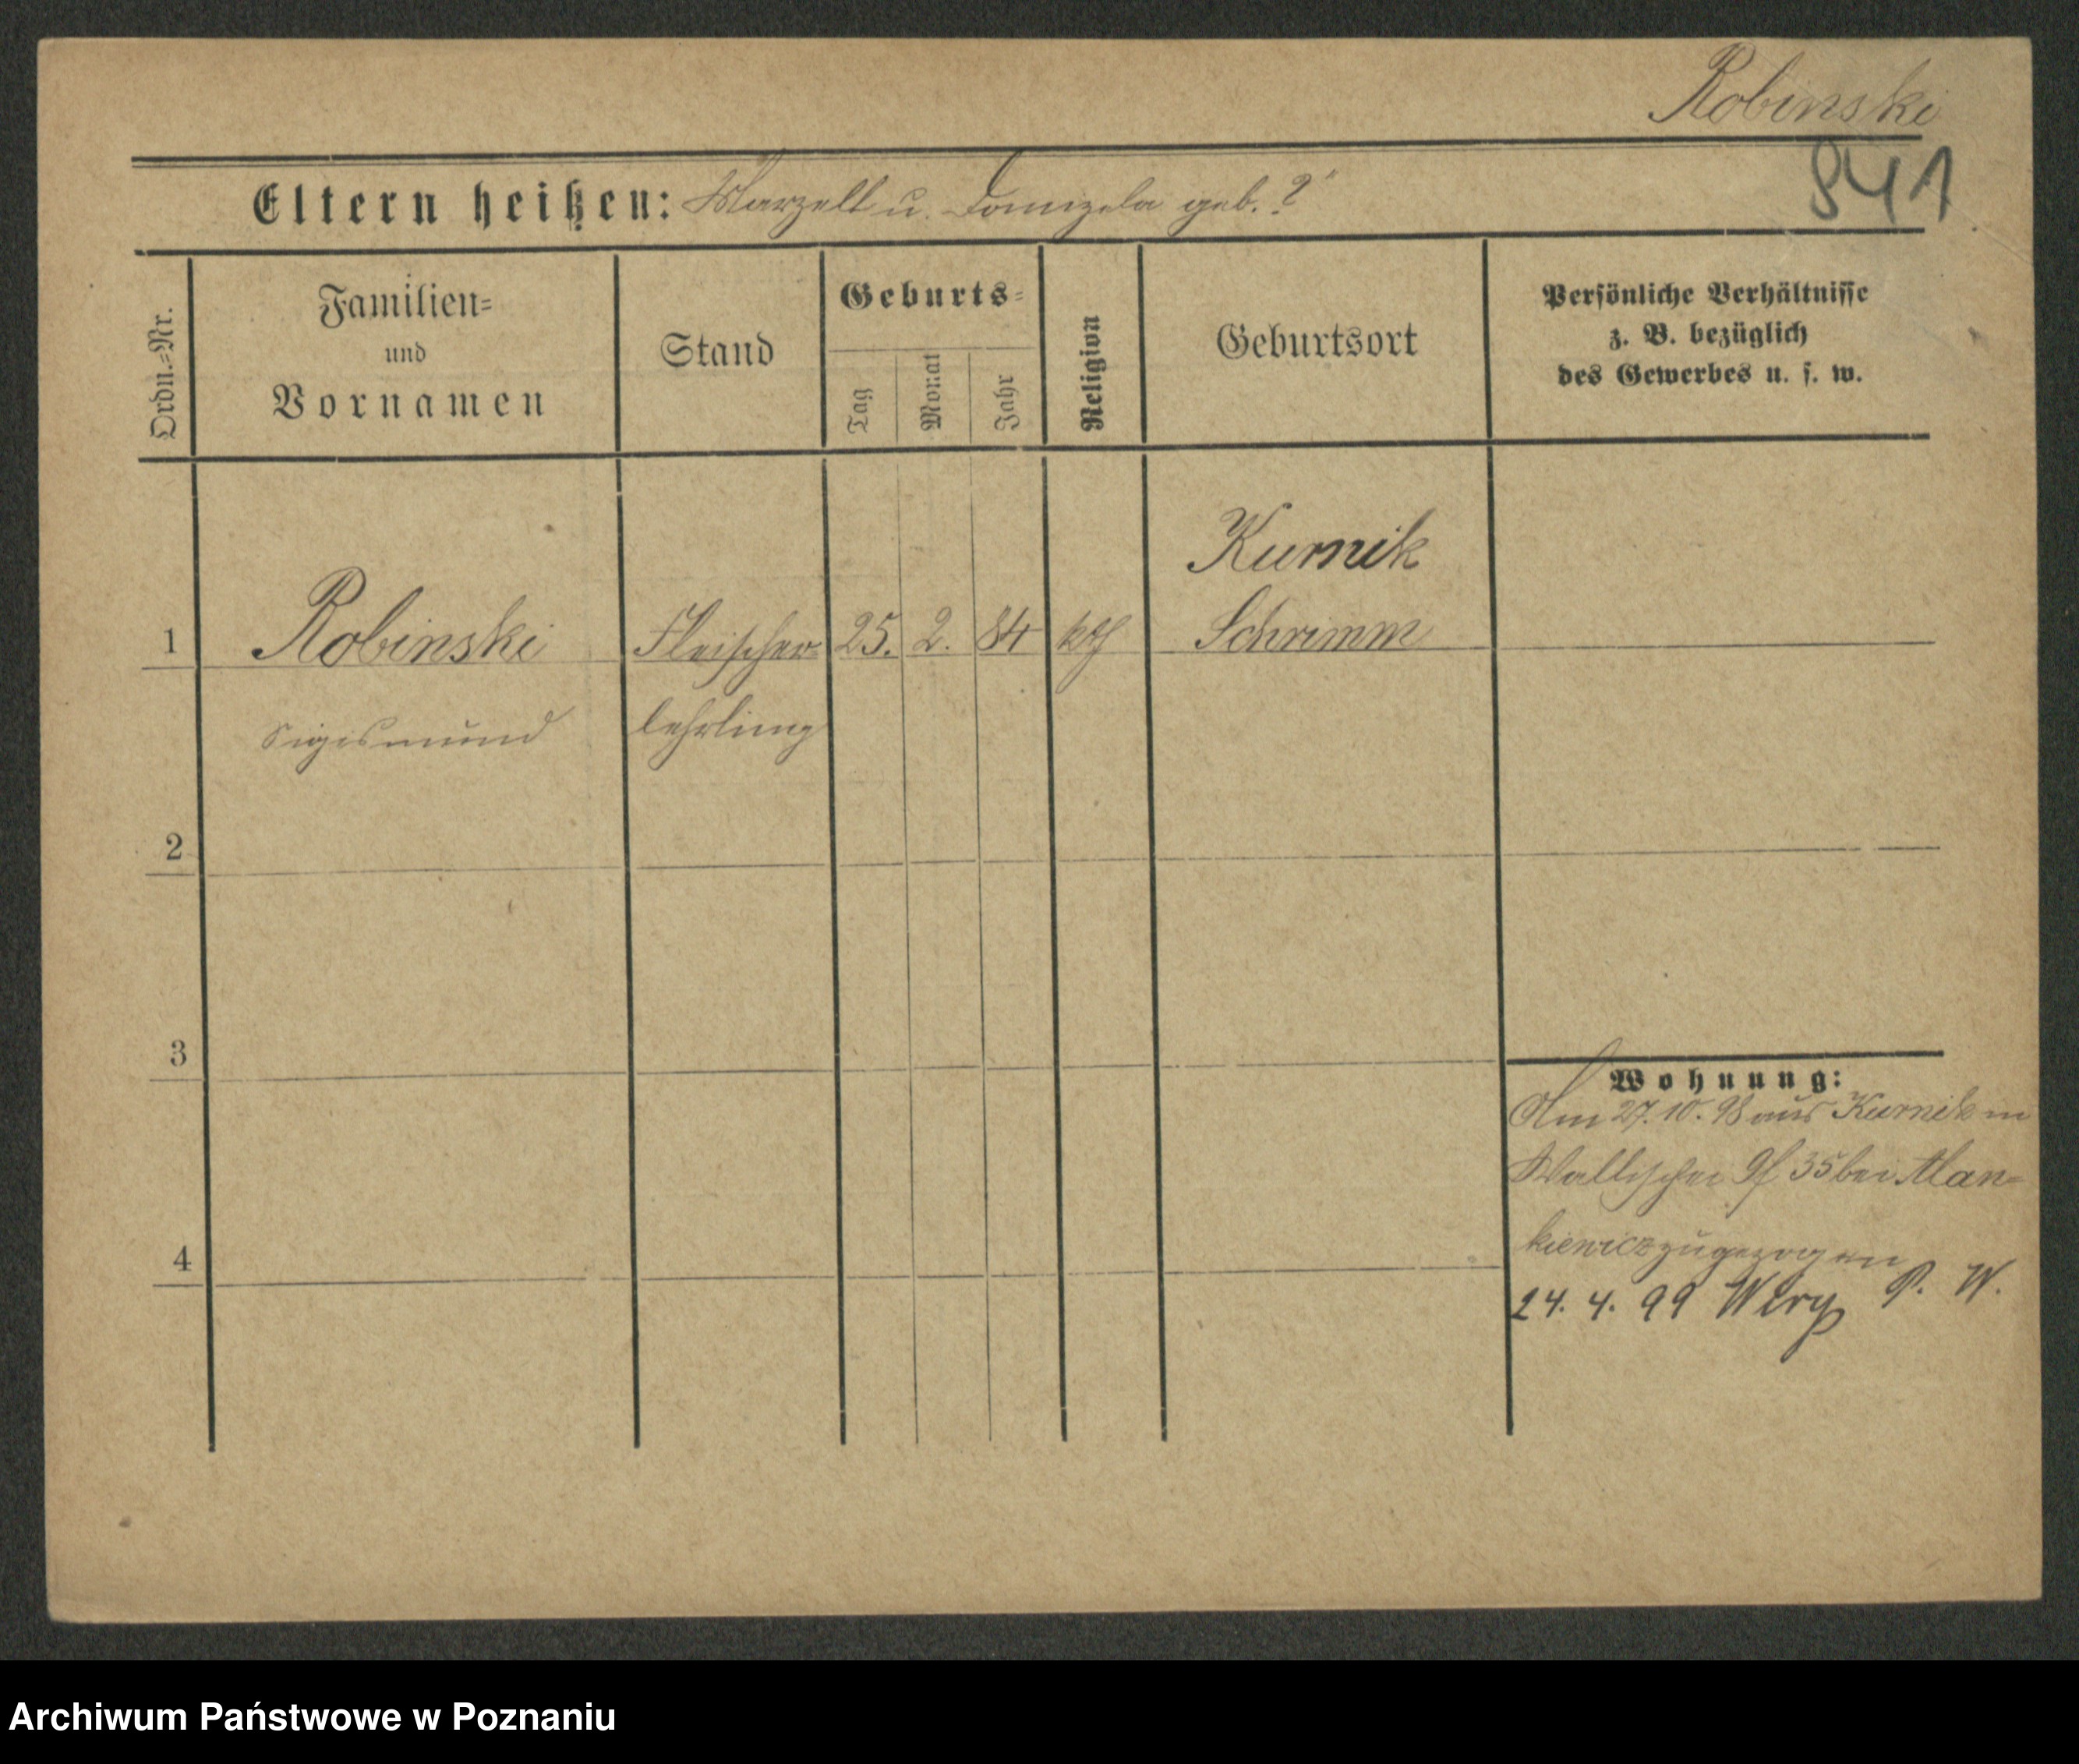 Robinski
841
Eltern heißen: Marzell u. Domizela geb. ?"
Ordn.=Nr.
Familien=
und
Vornamen
Stand
Geburts=
Tag
Monat
Jahr
Religion
Geburtsort
Persönliche Verhältnisse
z. B. bezüglich
des Gewerbes u. s. w.
Kurnik
1 Robinski Fleischer= 25. 2. 84 kth Schrimm
Sigismund lehrling
2
3
Wohnung:
Am 27.10.98 aus Kurnik in
Wallischei 35 bei Man=
kiewicz zugezogen
4
24. 4. 99 P. W.
Archiwum Państwowe w Poznaniu